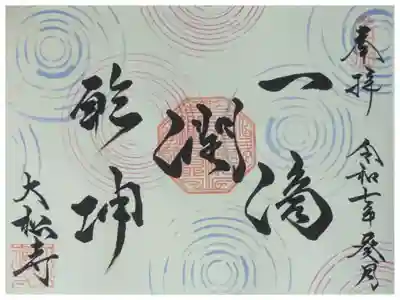 奉拝
一滴
潤
乾坤
令和七年
大松寺